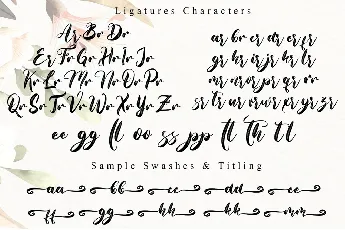 Ligatures Characters
Ar Br Dr
Er Fr Gr Hr Ir Jr
Kr Lr Mr Nr Or Pr
Qr Sr Tr Ur Vr Wr Xr Yr Zr
ar br cr dr er fr
gr hr ir jr kr lr
mr nr or pr qr rr
sr tr ur vr wr xr yr zr
ee gg fl oo ss pp tl Th tt
Sample Swashes & Titling
aa bb cc dd ee
ff gg hh kk mm